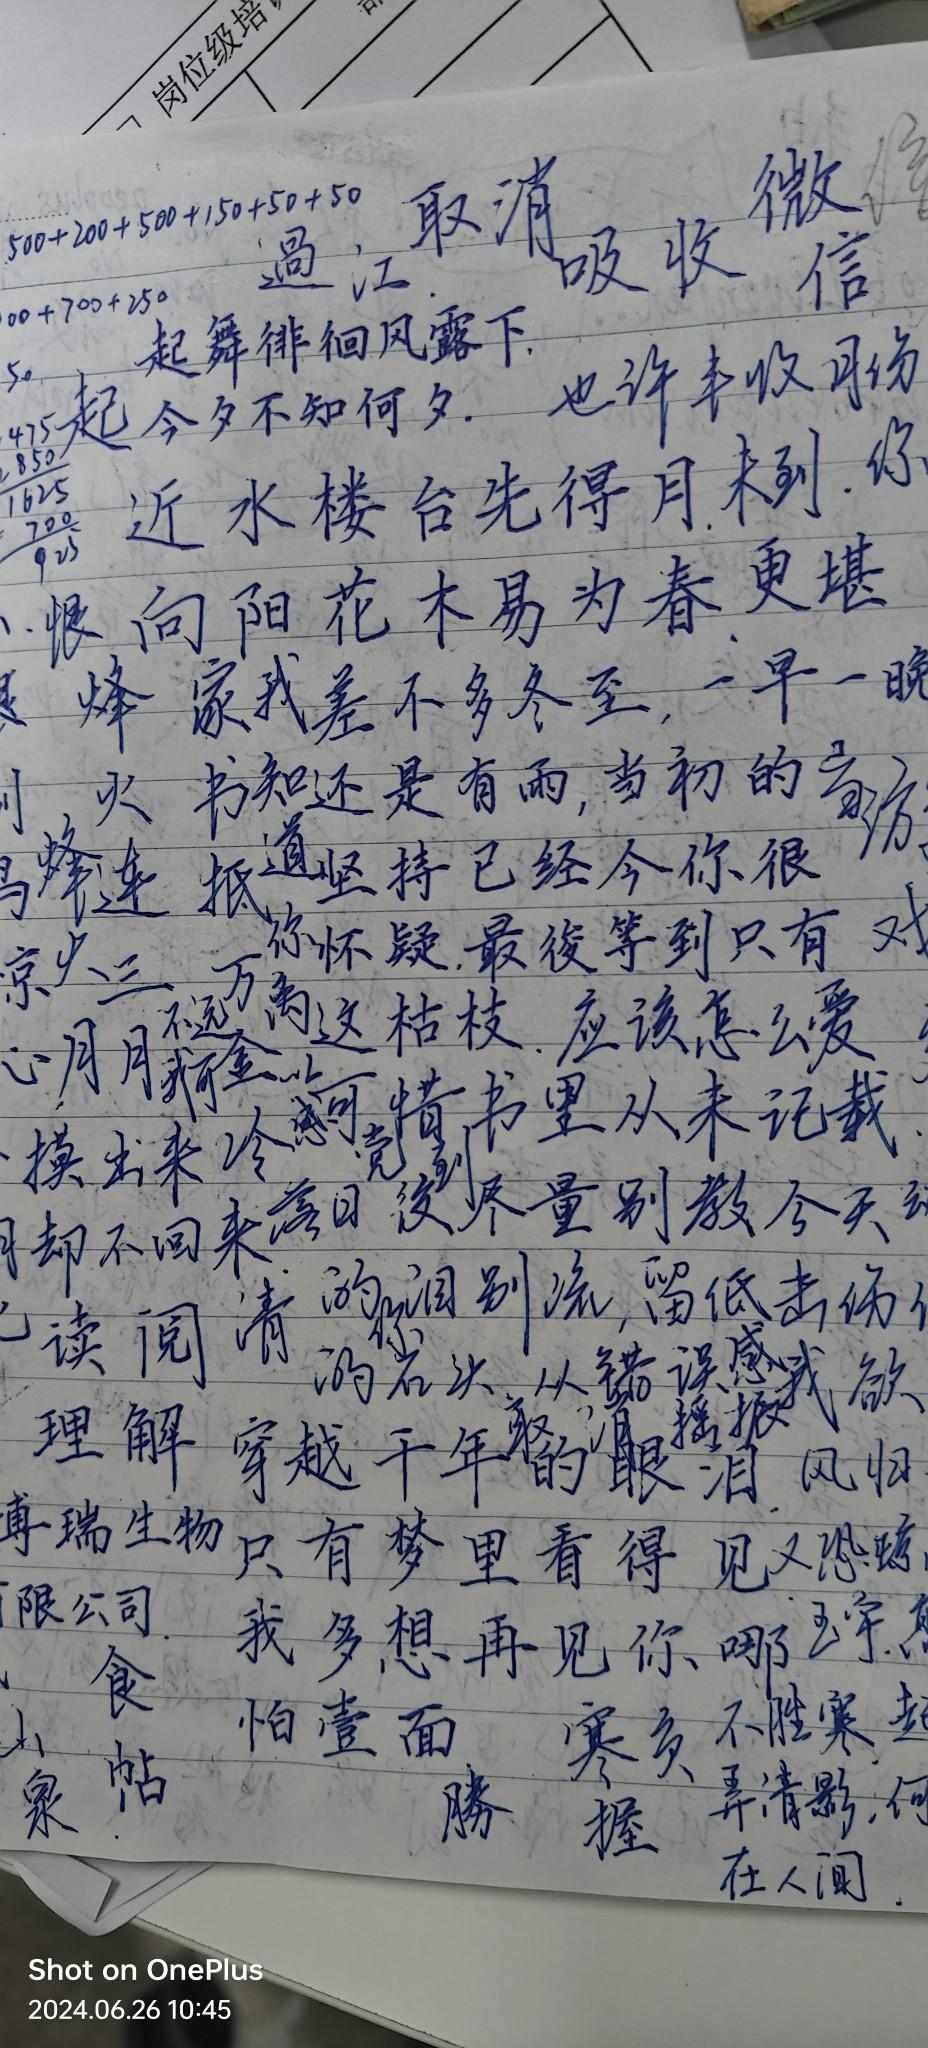 岗位级培
500+200+500+150+50+50
取消
微信
過江.
吸收
00+700+250
起舞徘徊风露下.
50
起今夕不知何夕.
也许丰收月份
475
850
1625
700
925
近水楼台先得月.
未到.你
恨
向阳花木易为春.
更堪
烽
家我差不多冬至,一早一晚
火
书知还是有雨,当初的
烽连
抵道坚持已经令你很
少三
万你怀疑.最後等到只有
心月月
不远
我可
金
离这枯枝.应该怎么爱
可惜书里从未记载.
摸出来冷感觉到
却不回来.落日後尽量别教今天
的泪别流,留低击伤
读阅清
你的石头.从错误感我欲
理解
穿越千年的眼泪.风归
取消
摇振
博瑞生物
只有梦里看得见又恐
限公司.
我多想再见你、哪
玉宇.
食
怕壹面
寒负
不胜寒.起
泉
帖
勝
握
弄清影.何
在人间.
Shot on OnePlus
2024.06.26 10:45